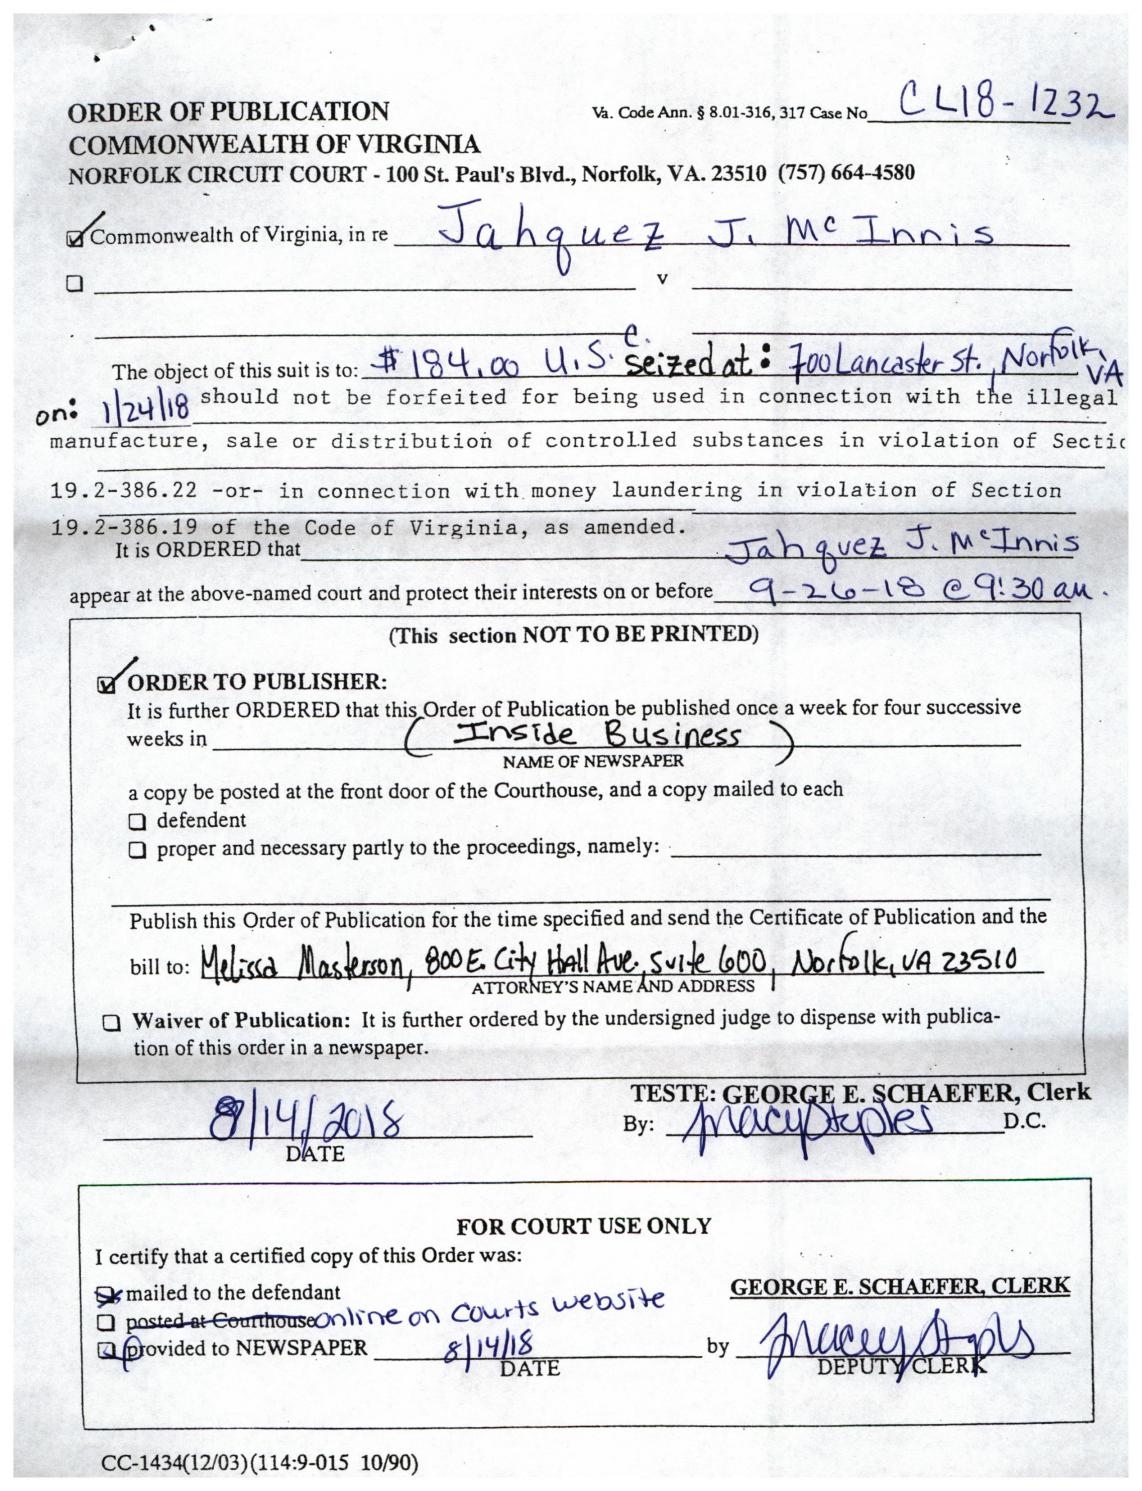 ORDER OF PUBLICATION
Va. Code Ann. § 8.01-316, 317 Case No CL18-1232
COMMONWEALTH OF VIRGINIA
NORFOLK CIRCUIT COURT - 100 St. Paul's Blvd., Norfolk, VA. 23510 (757) 664-4580
Commonwealth of Virginia, in re Jahquez J. McInnis
v
The object of this suit is to: $184.00 U.S.C. seized at: 700 Lancaster St., Norfolk, VA
on: 1/24/18 should not be forfeited for being used in connection with the illegal
manufacture, sale or distribution of controlled substances in violation of Sectio
19.2-386.22 -or- in connection with money laundering in violation of Section
19.2-386.19 of the Code of Virginia, as amended.
It is ORDERED that Jahquez J. McInnis
appear at the above-named court and protect their interests on or before 9-26-18 @ 9:30 am.
(This section NOT TO BE PRINTED)
ORDER TO PUBLISHER:
It is further ORDERED that this Order of Publication be published once a week for four successive
weeks in (Inside Business)
NAME OF NEWSPAPER
a copy be posted at the front door of the Courthouse, and a copy mailed to each
defendent
proper and necessary partly to the proceedings, namely:
Publish this Order of Publication for the time specified and send the Certificate of Publication and the
bill to: Melissa Masterson, 800 E. City Hall Ave., Suite 600, Norfolk, VA 23510
ATTORNEY'S NAME AND ADDRESS
Waiver of Publication: It is further ordered by the undersigned judge to dispense with publica-
tion of this order in a newspaper.
TESTE: GEORGE E. SCHAEFER, Clerk
8/14/2018 By: Tracy Staples D.C.
DATE
FOR COURT USE ONLY
I certify that a certified copy of this Order was:
mailed to the defendant
GEORGE E. SCHAEFER, CLERK
posted at Courthouse online on courts website
provided to NEWSPAPER 8/14/18 by Tracey Staples
DATE
DEPUTY CLERK
CC-1434(12/03)(114:9-015 10/90)